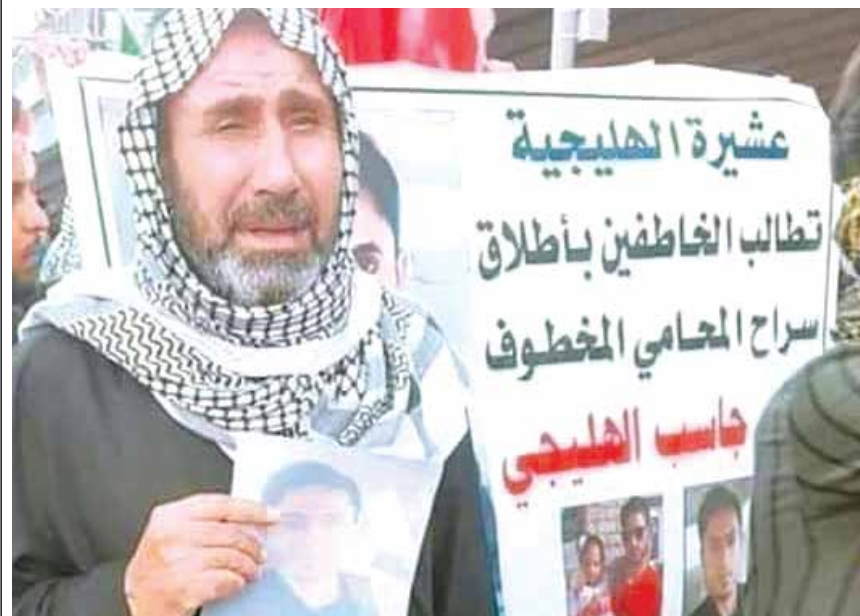 عشيرة الهليجية
تطالب الخاطفين بأطلاق
سراح المحامي المخطوف
جاسب الهليجي